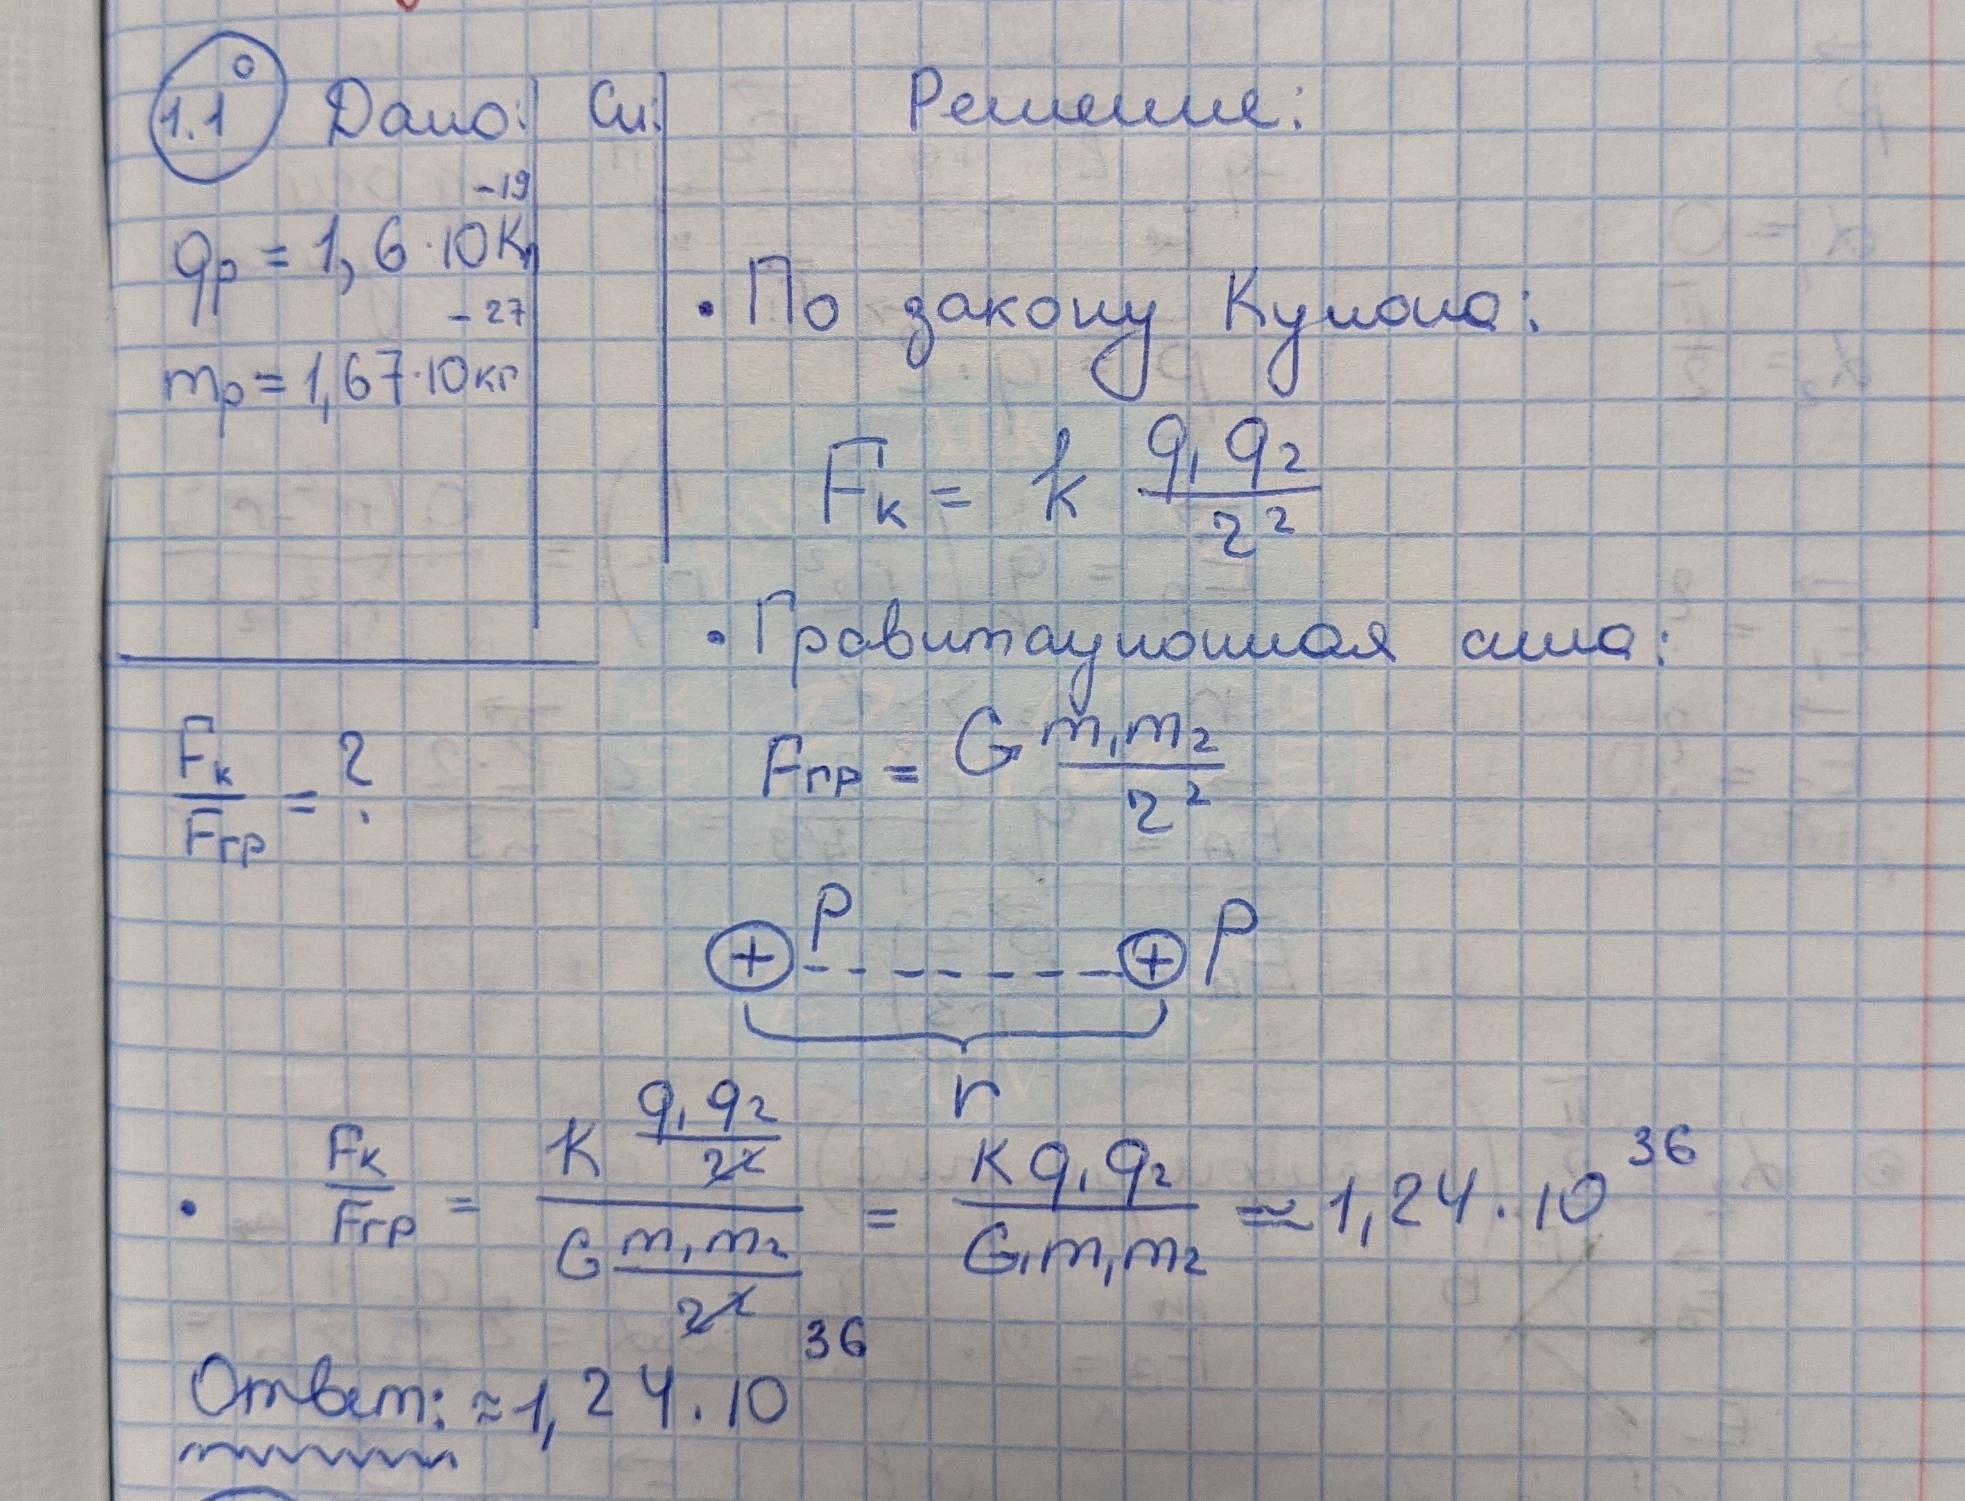 1.1° Дано: Си: Решение:
qp = 1,6·10⁻¹⁹ Кл
mp = 1,67·10⁻²⁷ кг
Fк/Fгр = ?
• По закону Кулона:
Fк = k q₁q₂/r²
• Гравитационная сила:
Fгр = G m₁m₂/r²
+ P + P
r
• Fк/Fгр = (k q₁q₂/r²)/(G m₁m₂/r²) = k q₁q₂/(G m₁m₂) ≈ 1,24·10³⁶
Ответ: ≈ 1,24·10³⁶